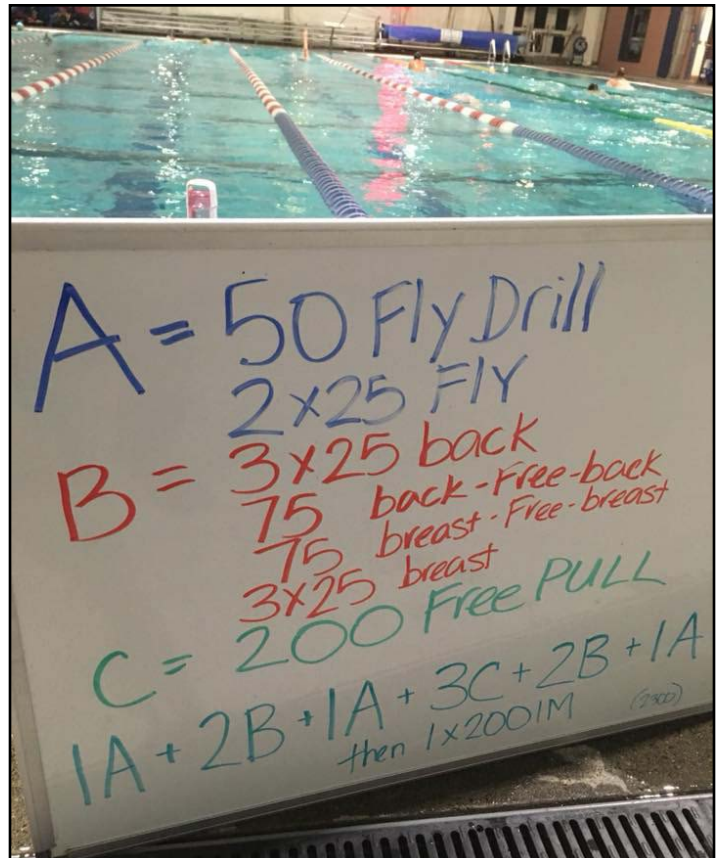 A = 50 Fly Drill
2x25 FLY
B = 3x25 back
75 back-Free-back
75 breast-Free-breast
3x25 breast
C = 200 Free PULL
1A + 2B + 1A + 3C + 2B + 1A
then 1x200IM (2300)